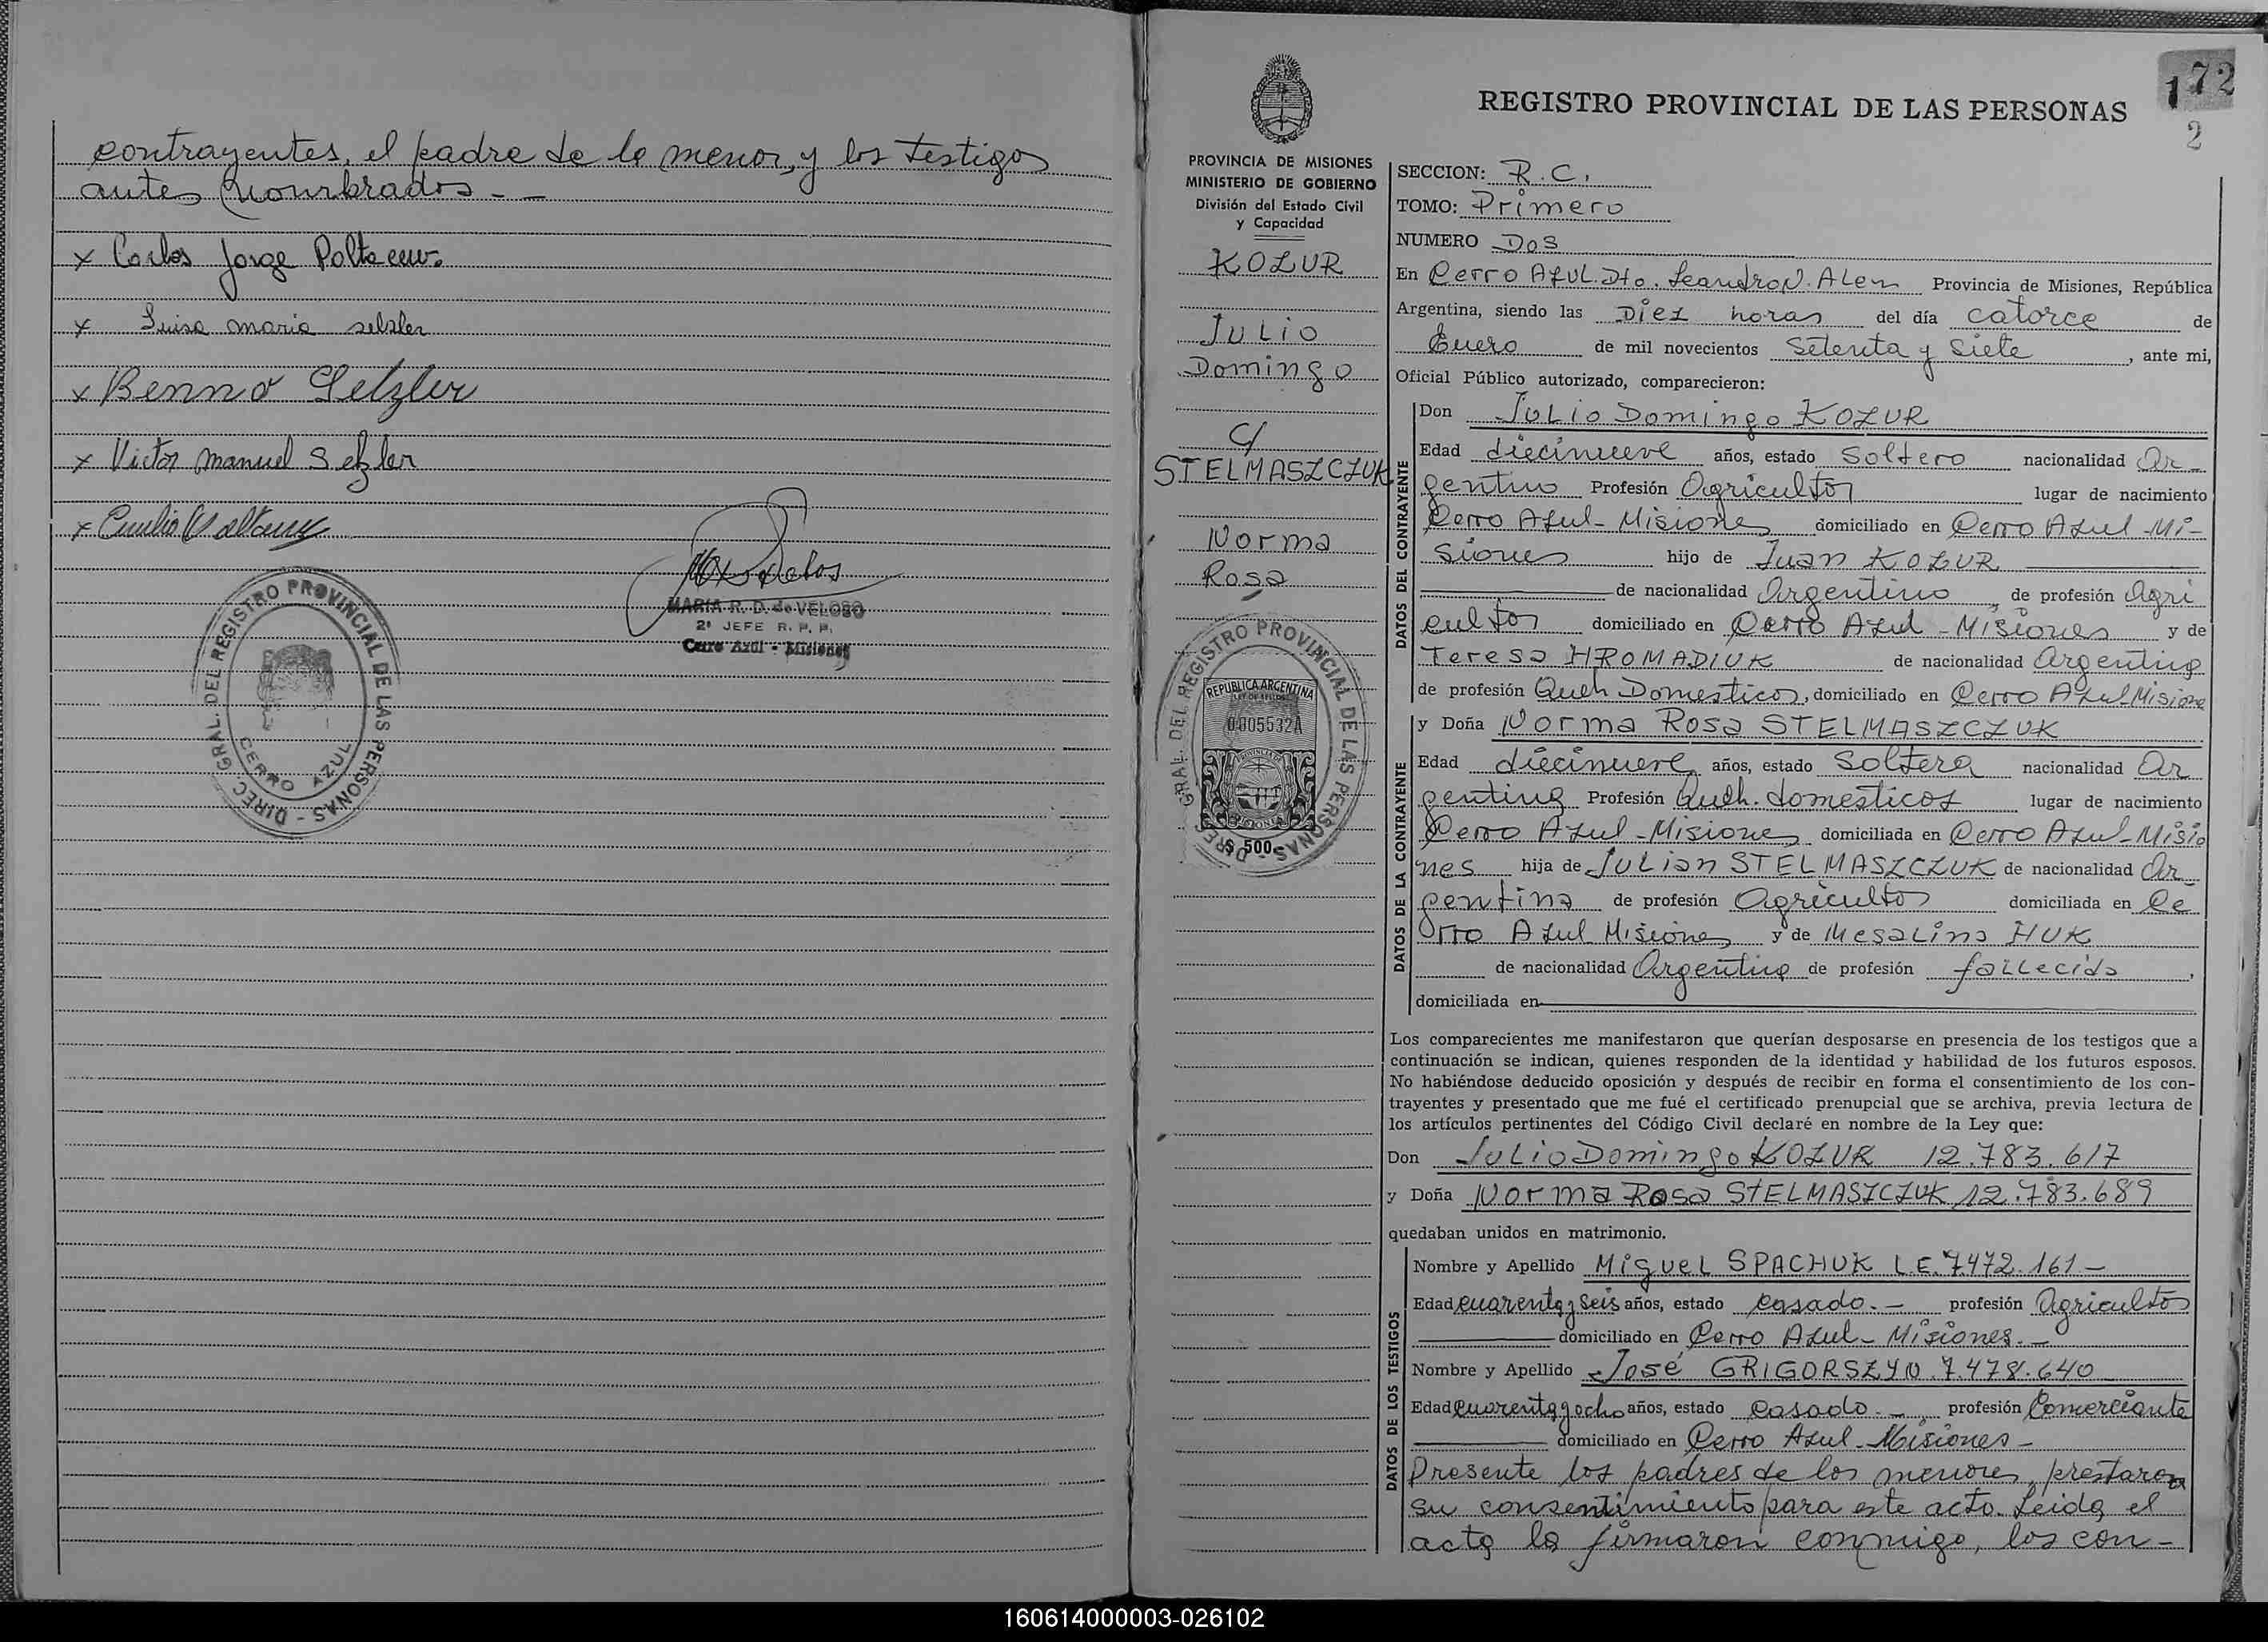 contrayentes, el padre de la menor, y los testigos
antes nombrados. -
x Carlos Jorge
x Luisa maria selzler
x Benno Selzler
x Victor manuel Selzler
x Emilio
MARIA R. D. de VELOSO
2º JEFE R. P. P.
Cerro Azul - Misiones
DIREC. GRAL. DEL REGISTRO PROVINCIAL DE LAS PERSONAS -
CERRO AZUL
172
2
REGISTRO PROVINCIAL DE LAS PERSONAS
PROVINCIA DE MISIONES
MINISTERIO DE GOBIERNO
División del Estado Civil
y Capacidad
KOZUR
Julio
Domingo
c/
STELMASZCZUK
Norma
Rosa
DIREC. GRAL. DEL REGISTRO PROVINCIAL DE LAS PERSONAS -
REPUBLICA ARGENTINA
LEY DE SELLOS
0005532A
PROVINCIA DE
MISIONES
$ 500
SECCION: R.C.
TOMO: Primero
NUMERO Dos
En Cerro Azul. Dto. Leandro N. Alem Provincia de Misiones, República
Argentina, siendo las Diez horas del día catorce de
Enero de mil novecientos Setenta y Siete, ante mi,
Oficial Público autorizado, comparecieron:
DATOS DEL CONTRAYENTE
Don Julio Domingo KOZUR
Edad diecinueve años, estado Soltero nacionalidad Ar-
gentino Profesión Agricultor lugar de nacimiento
Cerro Azul - Misiones domiciliado en Cerro Azul - Mi-
siones hijo de Juan KOZUR
de nacionalidad Argentino, de profesión Agri
cultor domiciliado en Cerro Azul - Misiones y de
Teresa HROMADIUK de nacionalidad Argentina
de profesión Queh Domesticos, domiciliado en Cerro Azul Misione
DATOS DE LA CONTRAYENTE
y Doña Norma Rosa STELMASZCZUK
Edad diecinueve años, estado Soltera nacionalidad Ar
gentina Profesión Queh. domesticos lugar de nacimiento
Cerro Azul - Misiones domiciliada en Cerro Azul - Misio
nes hija de Julian STELMASZCZUK de nacionalidad Ar-
gentina de profesión Agricultor domiciliada en Ce
rro Azul Misiones y de Mesalina HUK
de nacionalidad Argentina de profesión fallecida,
domiciliada en
Los comparecientes me manifestaron que querían desposarse en presencia de los testigos que a
continuación se indican, quienes responden de la identidad y habilidad de los futuros esposos.
No habiéndose deducido oposición y después de recibir en forma el consentimiento de los con-
trayentes y presentado que me fué el certificado prenupcial que se archiva, previa lectura de
los artículos pertinentes del Código Civil declaré en nombre de la Ley que:
Don Julio Domingo KOZUR 12.783.617
y Doña Norma Rosa STELMASZCZUK 12.783.689
quedaban unidos en matrimonio.
DATOS DE LOS TESTIGOS
Nombre y Apellido Miguel SPACHUK L.E. 7.472.161 -
Edad cuarenta y seis años, estado casado. - profesión Agricultor
domiciliado en Cerro Azul - Misiones. -
Nombre y Apellido José GRIGORSZYN. 7.478.640
Edad cuarenta y ocho años, estado casado. - profesión Comerciante
domiciliado en Cerro Azul - Misiones -
Presente los padres de los menores, prestaron
su consentimiento para este acto. Leida, el
acta la firmaron conmigo, los con-
160614000003-026102